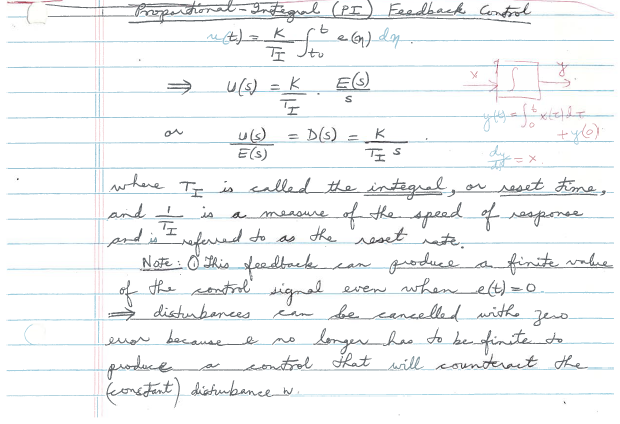 Proportional-Integral (PI) Feedback Control
u(t) = K/T_I ∫_{t_0}^{t} e(η) dη
⇒ U(s) = K/T_I · E(s)/s
x ∫ y
y(t) = ∫_0^t x(τ) dτ + y(0)
or U(s)/E(s) = D(s) = K/(T_I s) .
dy/dt = x
where T_I is called the integral, or reset time,
and 1/T_I is a measure of the speed of response
and is referred to as the reset rate.
Note: ① This feedback can produce a finite value
of the control signal even when e(t) = 0.
⇒ disturbances can be cancelled with zero
error because e no longer has to be finite to
produce a control that will counteract the
(constant) disturbance w.